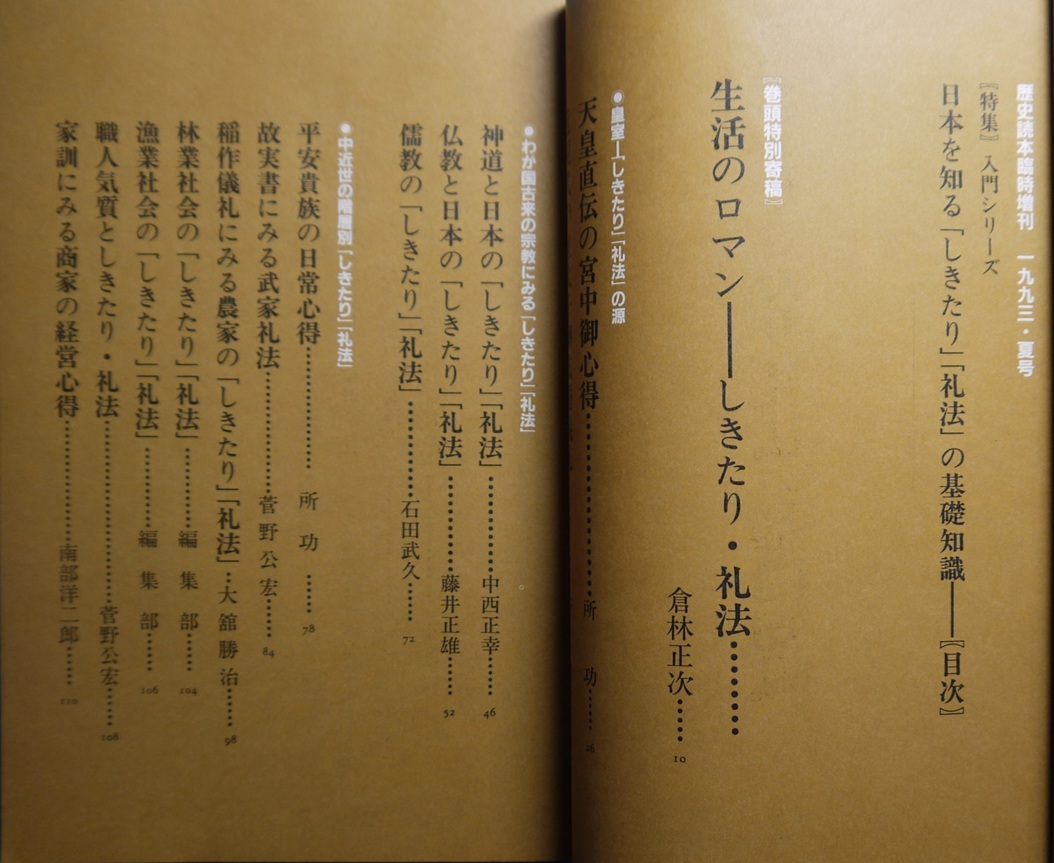 歴史読本臨時増刊　一九九三・夏号
『特集』入門シリーズ
日本を知る「しきたり」「礼法」の基礎知識――『目次』
『巻頭特別寄稿』
生活のロマン――しきたり・礼法………
倉林正次……10
●皇室―しきたり」「礼法」の源
天皇直伝の宮中御心得………………所　功……
●わが国古来の宗教にみる「しきたり」「礼法」
神道と日本の「しきたり」「礼法」…………中西正幸……46
仏教と日本の「しきたり」「礼法」…………藤井正雄……52
儒教の「しきたり」「礼法」…………石田武久……72
●中近世の階層別「しきたり」「礼法」
平安貴族の日常心得……………所　功……78
故実書にみる武家礼法……………菅野公宏……84
稲作儀礼にみる農家の「しきたり」「礼法」…大舘勝治……98
林業社会の「しきたり」「礼法」………編集部……104
漁業社会の「しきたり」「礼法」………編集部……106
職人気質としきたり・礼法…………………菅野公宏……108
家訓にみる商家の経営心得……………南部洋二郎……110